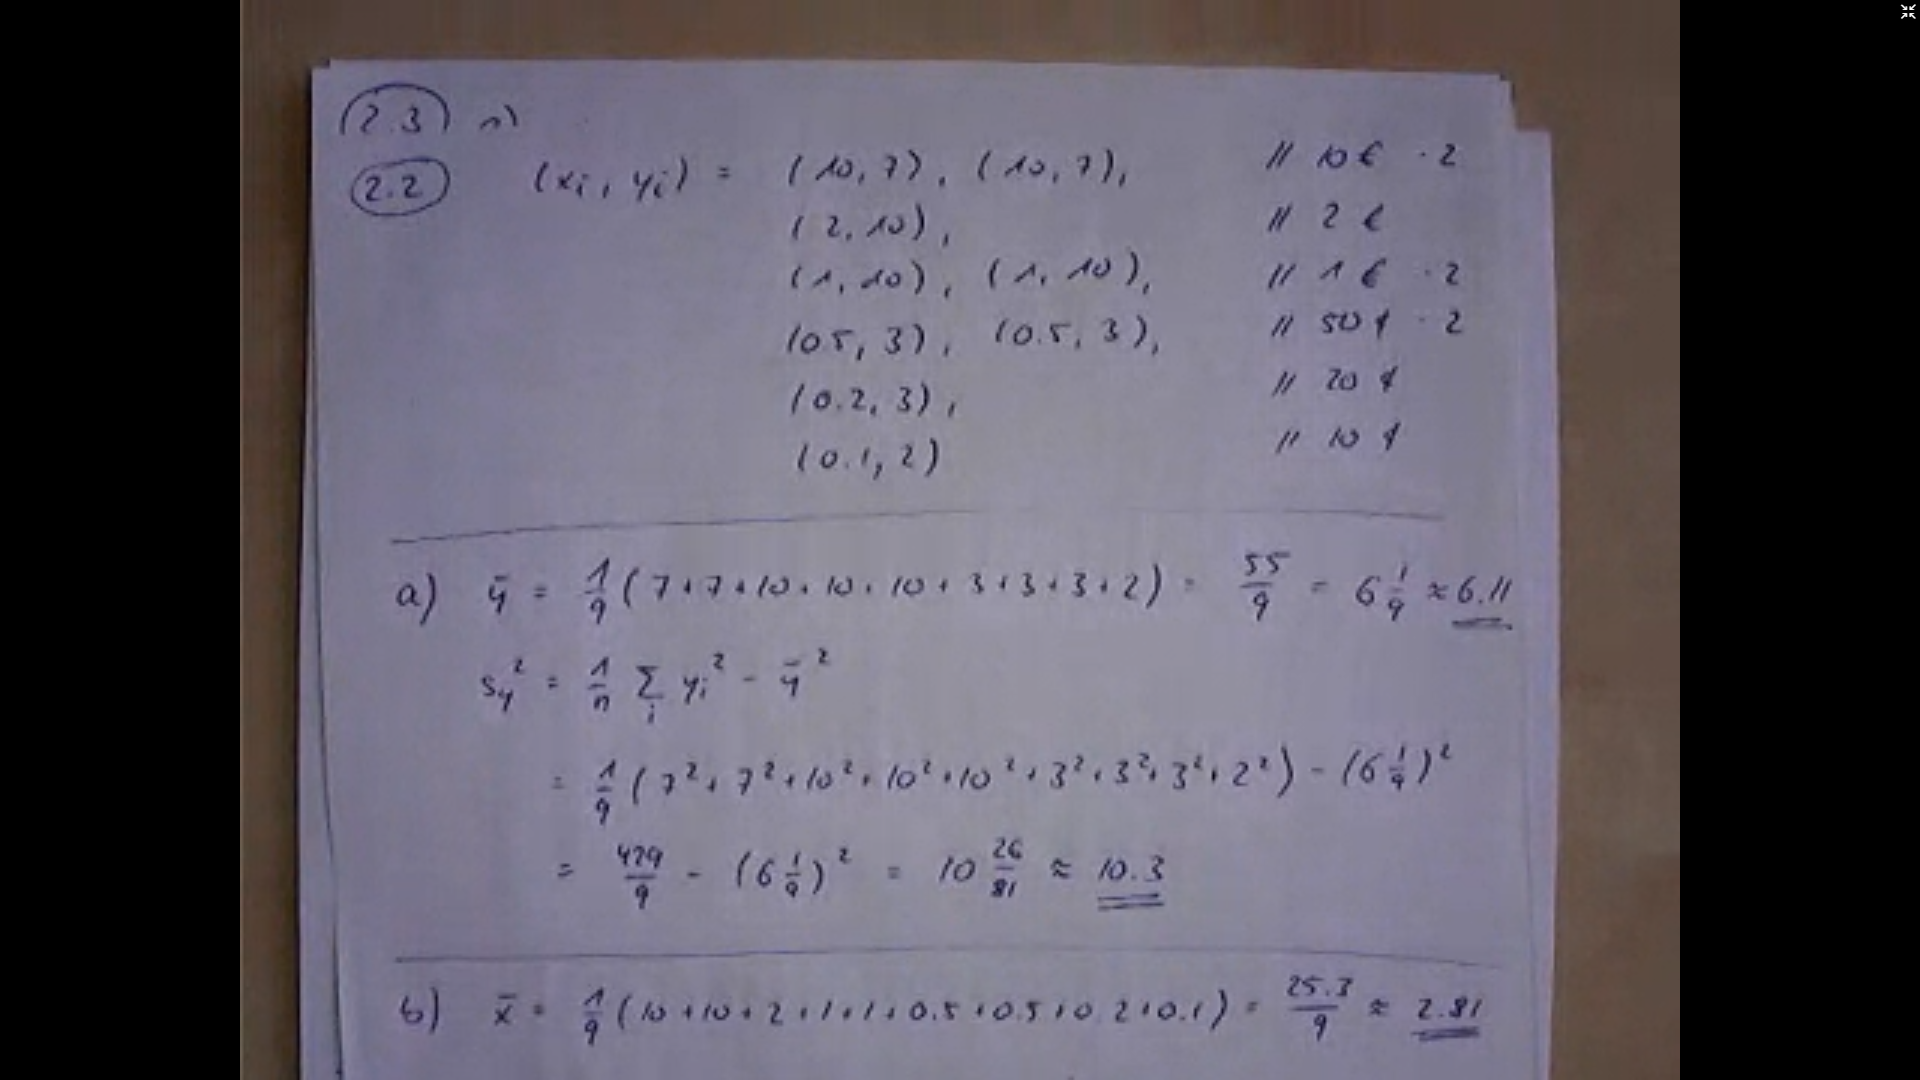 (2.3) a)
(2.2) (xi, yi) = (10, 7), (10, 7), // 10 € · 2
(2, 10), // 2 €
(1, 10), (1, 10), // 1 € · 2
(0.5, 3), (0.5, 3), // 50 ¢ · 2
(0.2, 3), // 20 ¢
(0.1, 2) // 10 ¢
a) ȳ = 1/9 (7+7+10+10+10+3+3+3+2) = 55/9 = 6 1/9 ≈ 6.11
sy² = 1/n Σi yi² - ȳ²
= 1/9 (7²+7²+10²+10²+10²+3²+3²+3²+2²) - (6 1/9)²
= 429/9 - (6 1/9)² = 10 26/81 ≈ 10.3
b) x̄ = 1/9 (10+10+2+1+1+0.5+0.5+0.2+0.1) = 25.3/9 ≈ 2.81